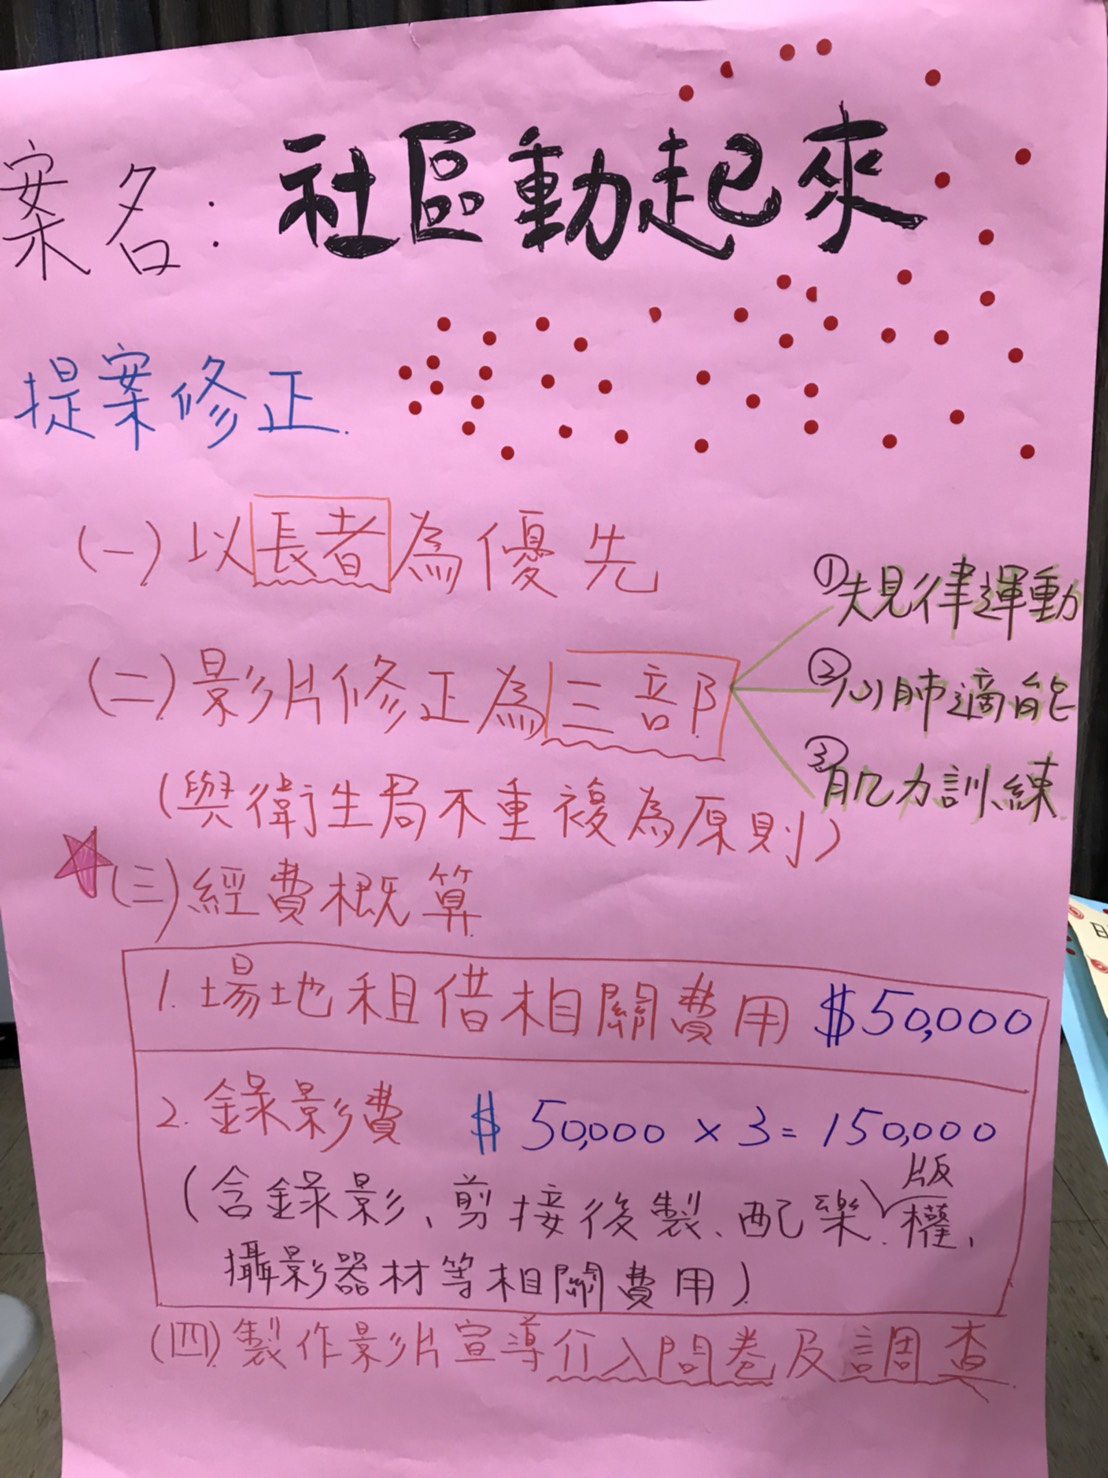 案名：社區動起來
提案修正.
(一)以長者為優先
(二)影片修正為三部
①規律運動
②心肺適能
③肌力訓練
(與衛生局不重複為原則)
(三)經費概算
1.場地租借相關費用 $50,000
2.錄影費 $50,000×3=150,000
(含錄影、剪接後製、配樂、版權、
攝影器材等相關費用)
(四)製作影片宣導介入問卷及調查